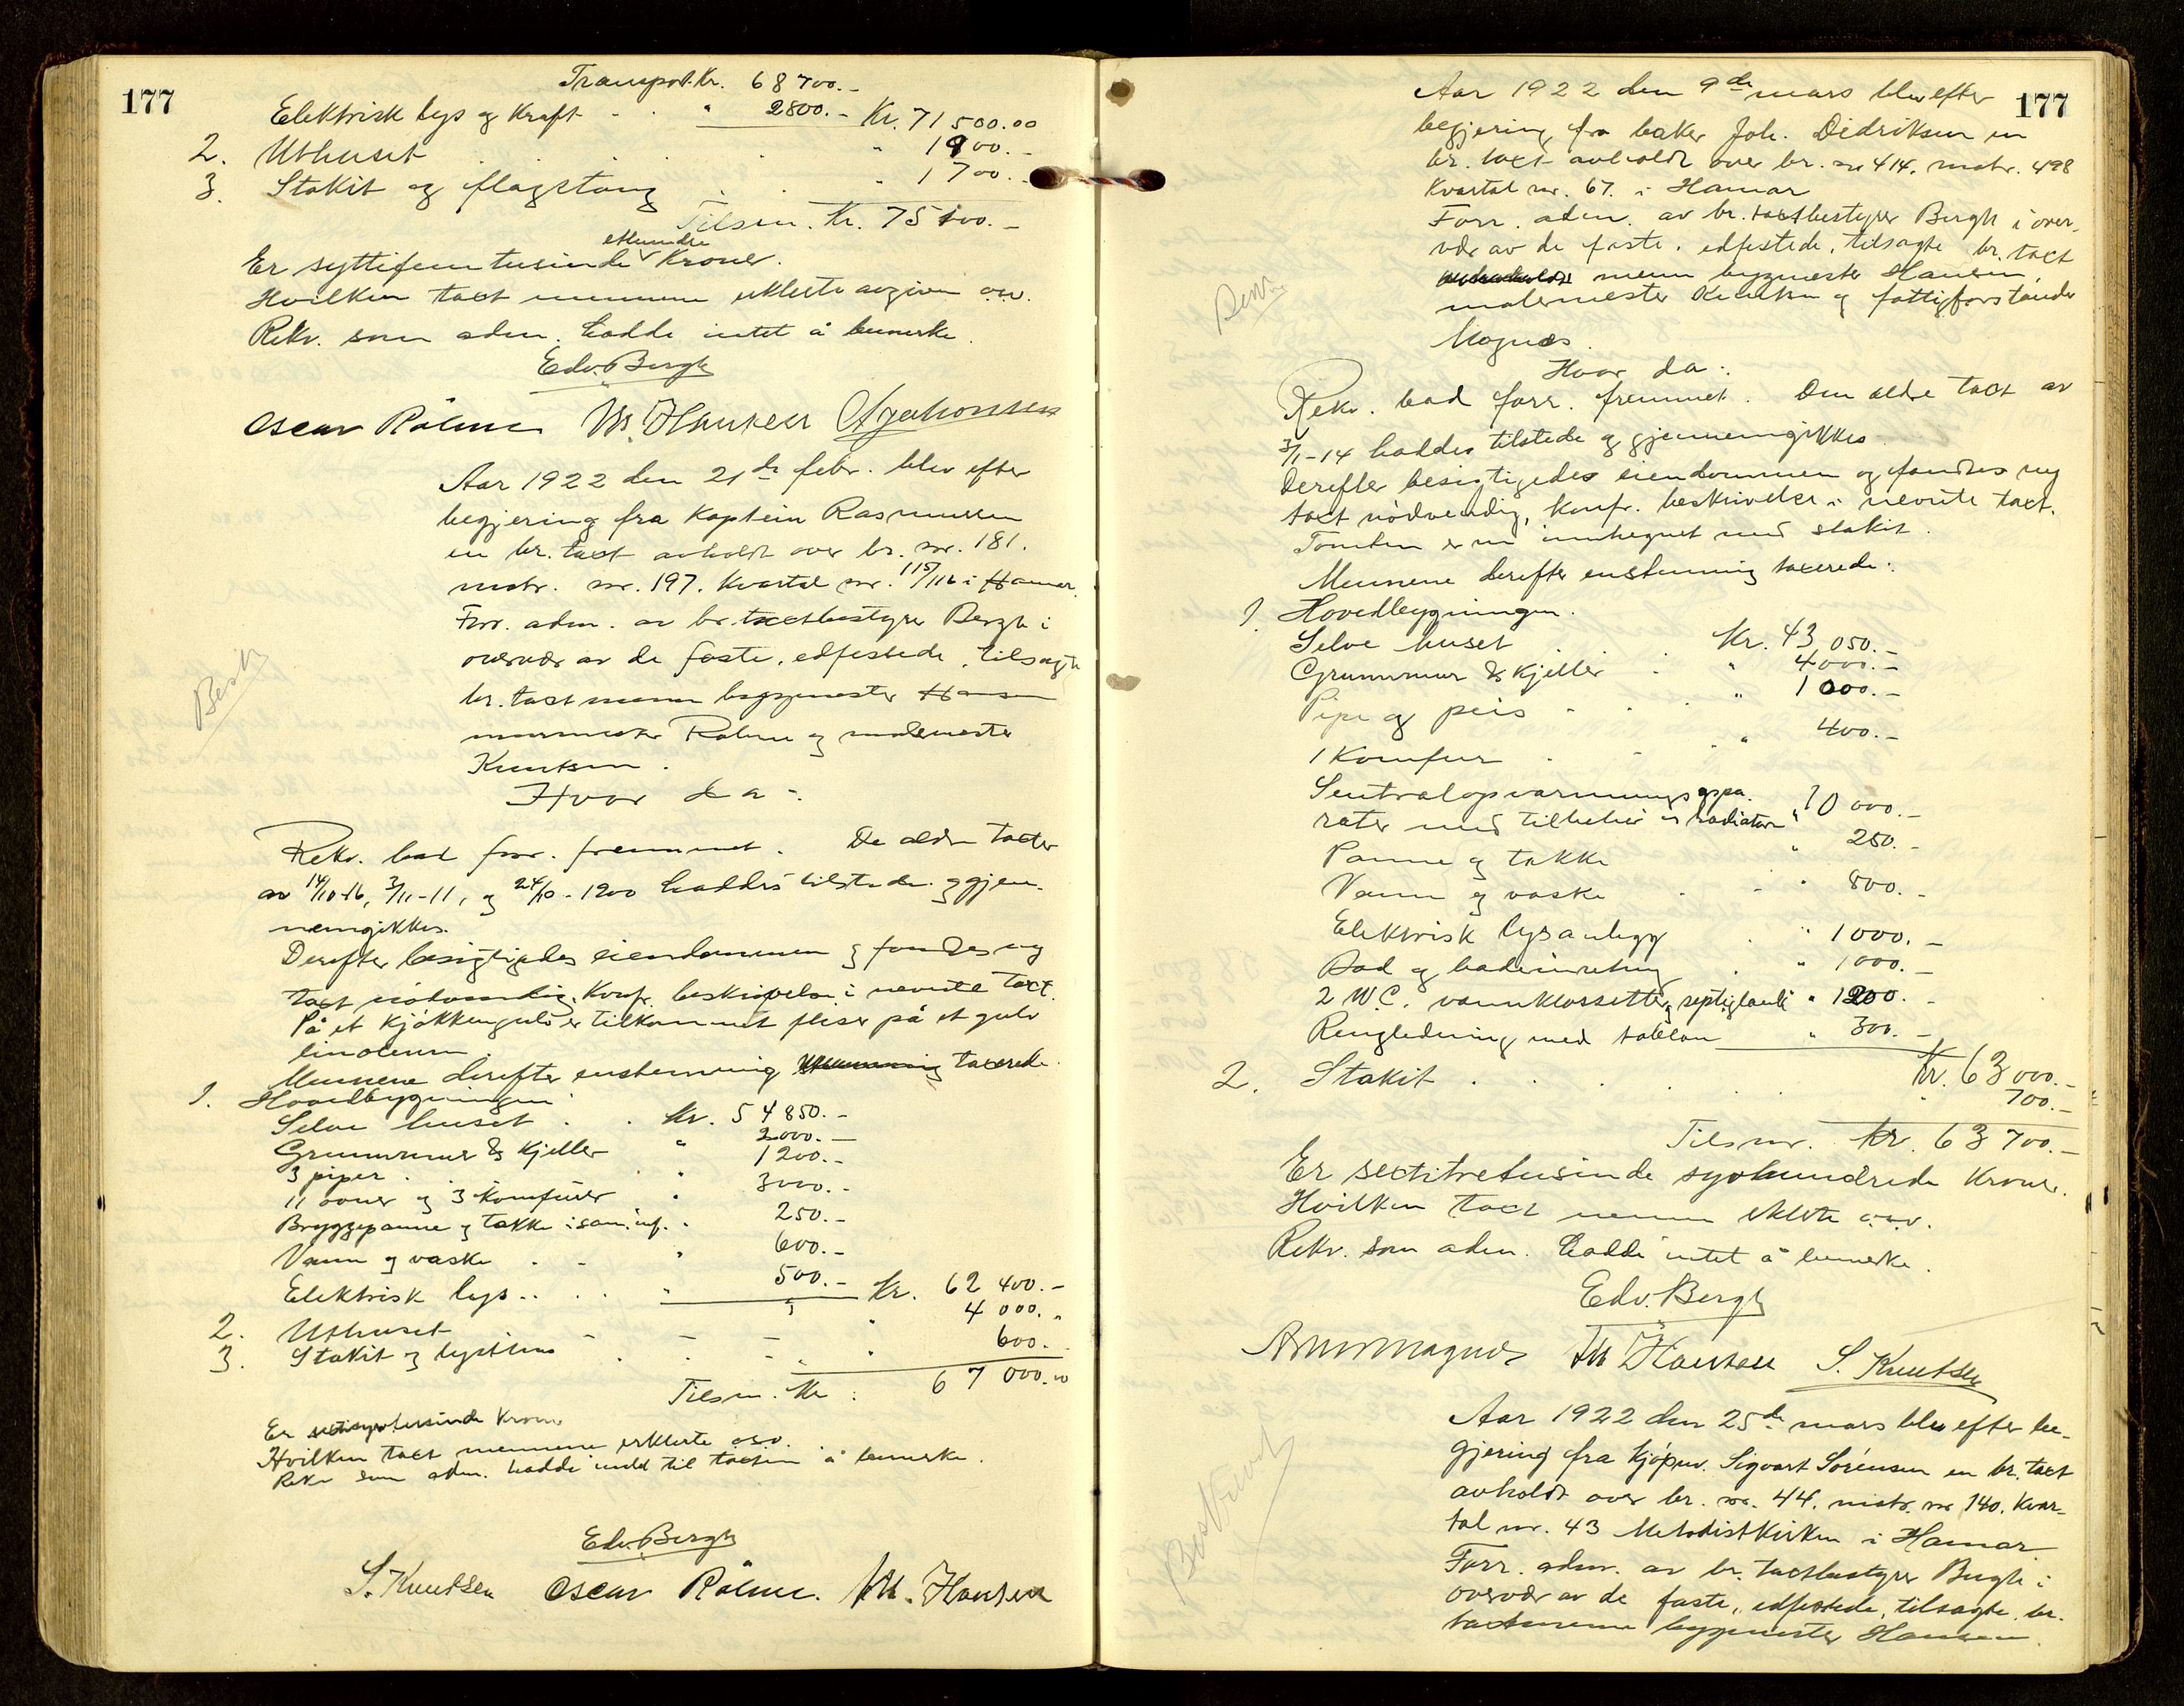 177
Transport. Kr. 68700.-
Elektrisk lys og Kraft - . " 2800.- Kr. 71500.00
2. Uthuset . . . . " 1900.-
3. Stakit og flagstang . . " 1700.-
Tilsm. Kr. 75100.-
ethundre
Er syttifemtusinde Kroner.
Hvilken taxt mennene erklerte avgiven osv.
Rekv. som adm. hadde intet å bemerke.
Edv. Bergh
Oscar Rølme M. Hansen
Aar 1922 den 21de febr. blev efter
begjering fra Kaptein Rasmussen
en br. taxt avholdt over br. nr. 181.
matr. nr. 197. Kvartal nr. 115/116 i Hamar.
Forr. adm. av br. taxtbestyrer Bergh i
overvær av de faste, edfestede, tilsagte
br. taxtmenn byggmester Hansen
murmester Rølme og malermester
Knutsen.
Hvor da:
Rekv. bad forr. fremmet. De eldre taxter
av 14/10-16, 3/11-11, og 24/10-1900 haddes tilstede og gjen-
nemgikkes.
Derefter besigtigedes eiendommen og fandtes ny
taxt nødvendig. Konfr. beskrivelse i nevnte taxt.
På et kjøkkengulv er tilkommet fliser på et gulv
linoleum.
Mennene derefter enstemmig taxerede
1. Hovedbygningen:
Selve huset . . Kr. 54850.-
Grunnmur & Kjeller " 2000.-
3 piper . . " 1200.-
11 ovner og 3 komfürer " 3000.-
Bryggepanne og takke i " 250.-
Vann og vaske . - " 600.-
Elektrisk lys .. . . " 500.- Kr. 62400.-
2. Uthuset - - - " 4000.-
3. Stakit og . . - " 600.
Tilsm. Kr. 67000.00
Er sextisyvtusinde Kroner
Hvilken taxt mennene erklerte osv.
Rekv. som adm. hadde intet til taxten å bemerke.
Edv. Bergh
S. Knutsen Oscar Rølme. M. Hansen
Besik
177
Aar 1922 den 9de mars blev efter
begjering fra baker Joh. Didriksen en
br. taxt avholdt over br. nr 414. matr. 498
Kvartal nr. 67. i Hamar
Forr. adm. av br. taxtbestyrer Bergh i over-
vær av de faste, edfestede, tilsagte br. taxt
menn bygmester Hansen,
malermester Knutsen og fattigforstander
Magnæs.
Hvor da:
Rekv. bad forr. fremmet. Den eldre taxt av
3/1-14 haddes tilstede og gjennemgikkes.
Derefter besigtigedes eiendommen og fandtes ny
taxt nødvendig, konfr. beskrivelse i nevnte taxt.
Tomten er nu innhegnet med stakit.
Mennene derefter enstemmig taxerede:
1. Hovedbygningen.
Selve huset . Kr. 43050.-
Grunnmur & Kjeller . " 4000.-
Pipe og peis - . " 1000.-
1 Komfur . - . " 400.-
Sentralopvarmningsappa-
rater med tilbehør og radiator " 10000.-
Panne og takke " 250.-
Vann og vaske . - " 800.-
Elektrisk lysanlegg . " 1000.-
Bad og badeinretning . " 1000.-
2 W.C. vannklossetter og septiktank " 1200.-
Ringledning med tablau " 300.-
Kr. 63000.-
2. Stakit . . . . " 700.-
Tilsm. Kr. 63700.-
Er sextitretusinde syvhundrede Kroner.
Hvilken taxt mennene erklerte osv.
Rekv. som adm. hadde intet å bemerke.
Edv. Bergh
M. Hansen S. Knutsen
Aar 1922 den 25de mars blev efter be-
gjering fra kjøpm. Sigvart Sørensen en br. taxt
avholdt over br. nr. 44. matr. nr 140. Kvar-
tal nr. 43 Metodistkirken i Hamar
Forr. adm. av br. taxtbestyrer Bergh i
overvær av de faste, edfestede, tilsagte br.
taxtmenn bygmester Hansen